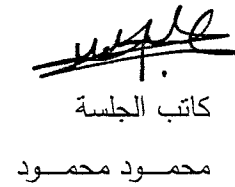 كاتب الجلسة
محمـــود محمـــود